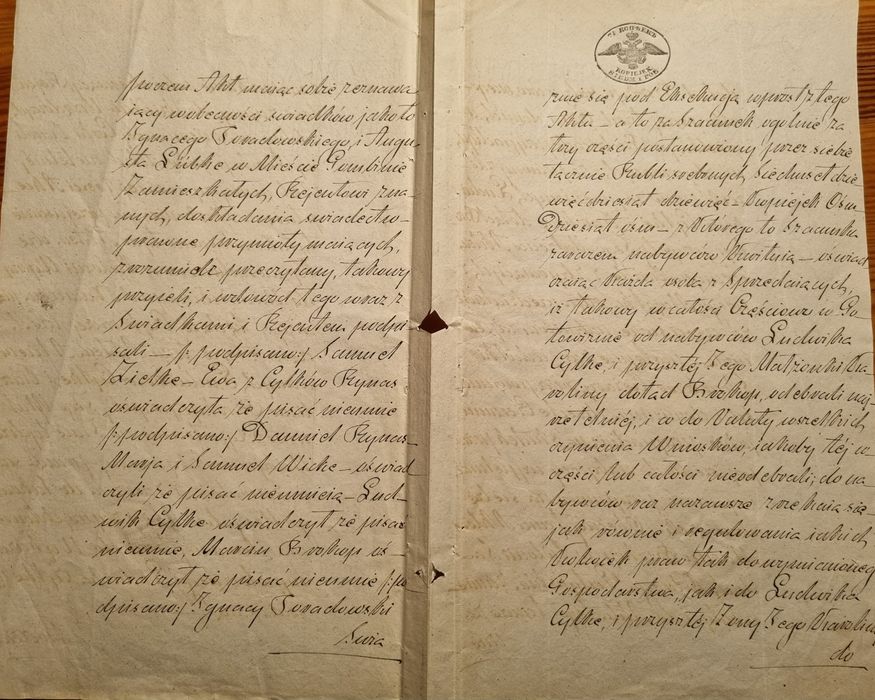 poczem Akt niniejszy sobie zeznawa
jący w obecności świadków jako to
Ignacego Toradowskiego, i Augu
sta Lübke w Mieście Gombinie
Zamieszkałych, Rejentowi zna
nych, do składania świadectw
prawne przymioty maiących,
zrozumiele przeczytany, takowy
przyieli, i w dowód tego wraz z
Świadkami i Rejentem podpi
sali – /: podpisano :/ Samuel
Zielke – Ewa z Cylków Rynas
oświadczyła że pisać nieumie
/: podpisano :/ Daniel Rynas –
Marja i Samuel Wicke – oświad
czyli że pisać nieumieią – Lud –
wik Cylke oświadczył że pisać
nieumie, Marcin Prokop oś –
wiadczył że pisać nieumie /: po
dpisano :/ Ignacy Toradowski
7½ КОПѢЕКЪ
KOPIEJEK
rzuie się pod Exekucją wprost z tego
Aktu – a to za Szacunek ogólnie za
trzy części postanowiony przez siebie
łącznie Rubli srebrnych Siedmset dzie
więćdziesiat dziewięć – Kopiejek Ośm
dziesiat ośm – z Którego to Szacunku
zarazem nabywców Kwituią – oświad
czaiąc Każda osoba z Sprzedaiących,
iż takowy w całości Częściowo w Go
towiznie od nabywców Ludwika
Cylke, i przyszłéj Jego Małżonki Ka
roliny dotąd Prokop, odebrali naj
rzetelniéj, i co do Valuty wszelkich
czynienia Wniosków, iakoby téj w
części lub całości nieodebrali; do na
bywców raz nazawsze zrzekaią się
jak równie i regulowania iakich
Kolwiek praw tak do wymienionego
Gospodarstwa, jak i do Ludwika
Cylke, i przyszłéj Żony Jego Karoliny
do